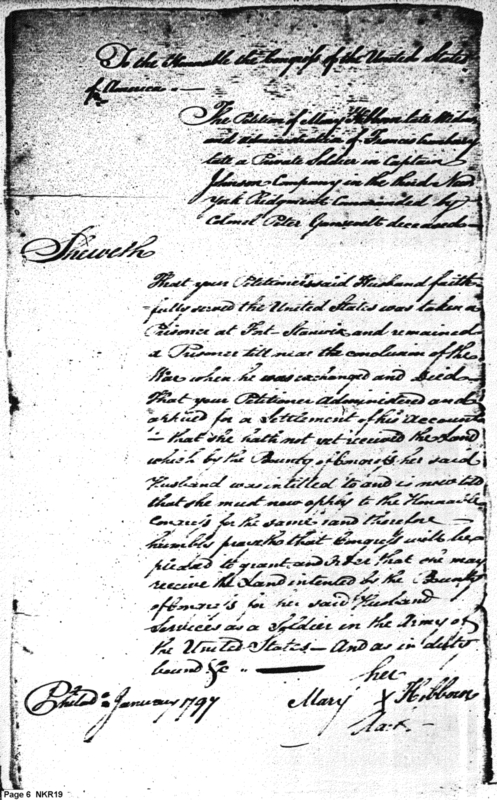 To the Honorable the Congress of the United States
of America.—
The Petition of Mary Hibbown late Widow
and administratrix of Francis
late a Private Soldier in Captain
Johnson Company in the third New
York Regiment Commanded by
Colonel Peter Gansevolt deceased
Sheweth
That your Petitioners said Husband faith
fully served the United States was taken a
Prisoner at Fort Stanwix and remained
a Prisoner till near the conclusion of the
War when he was exchanged and Died
That your Petitioner Administered and
applied for a Settlement of his Accounts
— that she hath not yet received the Land
which by the Bounty of Congress her said
Husband was intitled to and is now told
that she must now apply to the Honorable
Congress for the same and therefore
humbly prayeth that Congress will be
pleased to grant and order that she may
receive the Land intented by the Bounty
of Congress for her said Husband
Services as a Soldier in the Army of
the United States — And as in duty
bound &c
Philada. January 1797
her
Mary X Hibbown
Mark
Page 6 NKR19